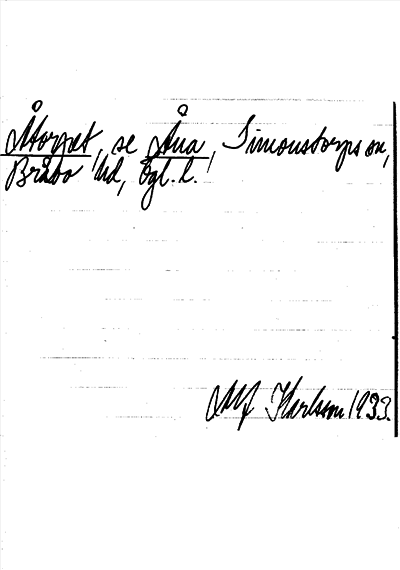 Åtorpet, se Åna, Simonstorps sn,
Bråbo hd, Ögl. l.
Alf Karlsson 1933.